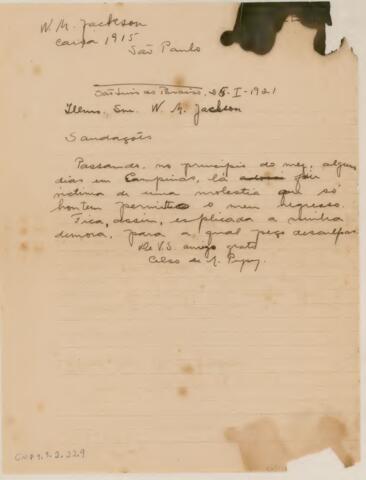 W. M. Jackson
Caixa 1915
São Paulo
São Luis do 25-I-1921
Illmo. Snr. W. M. Jackson
Saudações
Passando, no principio do mez, alguns
dias em Campinas, lá fui
victima de uma molestia que só
hontem permittiu o meu regresso.
Fica, assim, explicada a minha
demora, para a qual peço desculpas.
De V. S. amigo grato
Celso de M.